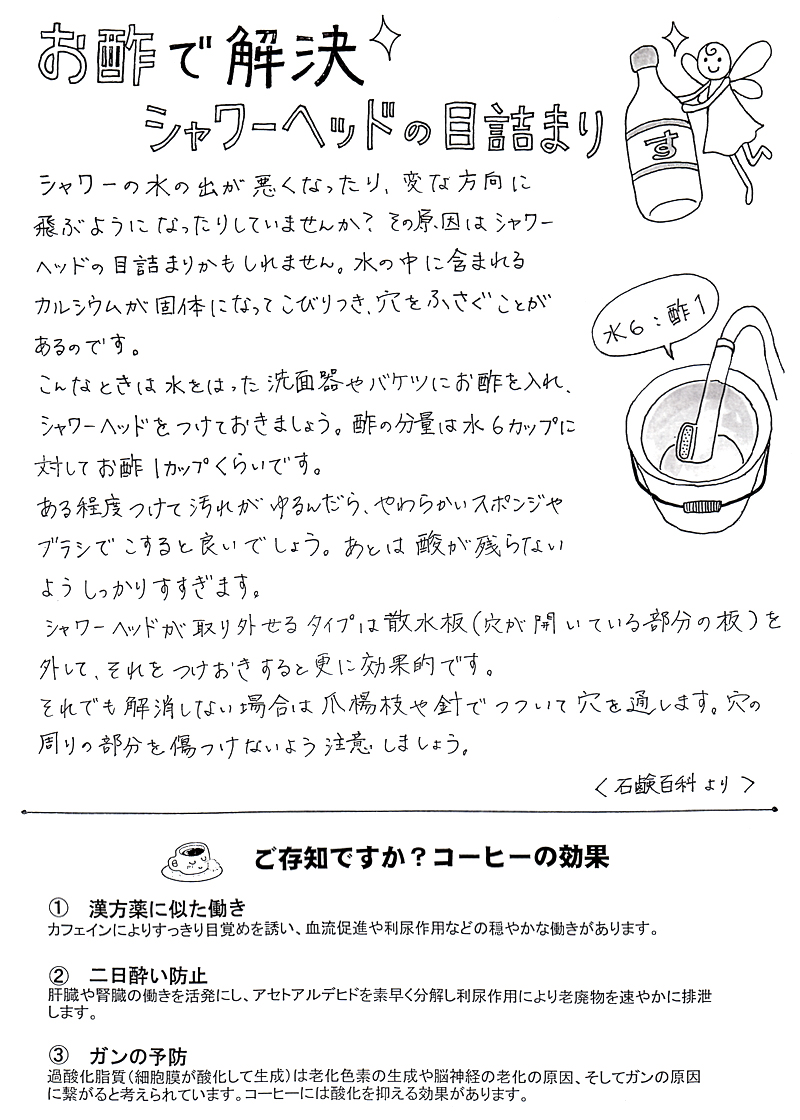 お酢で解決
シャワーヘッドの目詰まり
す
シャワーの水の出が悪くなったり、変な方向に
飛ぶようになったりしていませんか？その原因はシャワー
ヘッドの目詰まりかもしれません。水の中に含まれる
カルシウムが固体になってこびりつき、穴をふさぐことが
あるのです。
水6：酢1
こんなときは水をはった洗面器やバケツにお酢を入れ、
シャワーヘッドをつけておきましょう。酢の分量は水6カップに
対してお酢1カップくらいです。
ある程度つけて汚れがゆるんだら、やわらかいスポンジや
ブラシでこすると良いでしょう。あとは酸が残らない
ようしっかりすすぎます。
シャワーヘッドが取り外せるタイプは散水板（穴が開いている部分の板）を
外して、それをつけおきすると更に効果的です。
それでも解消しない場合は爪楊枝や針でつついて穴を通します。穴の
周りの部分を傷つけないよう注意しましょう。
＜石鹸百科より＞
ご存知ですか？コーヒーの効果
① 漢方薬に似た働き
カフェインによりすっきり目覚めを誘い、血流促進や利尿作用などの穏やかな働きがあります。
② 二日酔い防止
肝臓や腎臓の働きを活発にし、アセトアルデヒドを素早く分解し利尿作用により老廃物を速やかに排泄
します。
③ ガンの予防
過酸化脂質（細胞膜が酸化して生成）は老化色素の生成や脳神経の老化の原因、そしてガンの原因
に繋がると考えられています。コーヒーには酸化を抑える効果があります。